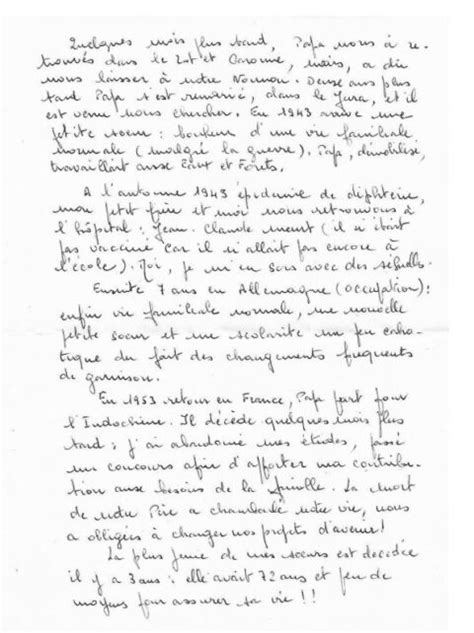 Quelques mois plus tard, Papa nous a re-
trouvés dans le Lot et Garonne, mais, a dû
nous laisser à notre Nounou. Deux ans plus
tard Papa s'est remarié, dans le Jura, et il
est venu nous chercher. En 1943 naît une
petite soeur : bonheur d'une vie familiale
normale (malgré la guerre). Papa, démobilisé,
travaillant aux Eaux et Forêts.
A l'automne 1943 épidémie de diphtérie,
mon petit frère et moi nous retrouvons à
l'hôpital : Jean-Claude meurt (il n'était
pas vacciné car il n'allait pas encore à
l'école). Moi, je m'en sors avec des séquelles.
Ensuite 7 ans en Allemagne (occupation) :
enfin vie familiale normale, une nouvelle
petite soeur et une scolarité un peu caho-
tique du fait des changements fréquents
de garnison.
En 1953 retour en France, Papa part pour
l'Indochine. Il décède quelques mois plus
tard ; j'ai abandonné mes études, passé
un concours afin d'apporter ma contribu-
tion aux besoins de la famille. La mort
de notre Père a chamboulé notre vie, nous
a obligées à changer nos projets d'avenir !
La plus jeune de mes soeurs est décédée
il y a 3 ans : elle avait 72 ans et peu de
moyens pour assurer sa vie !!